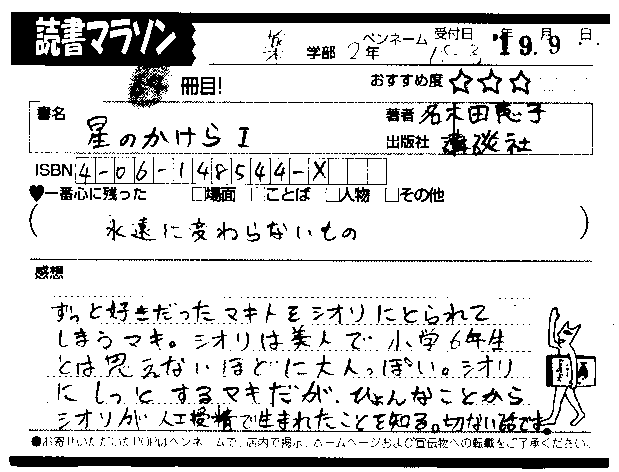 読書マラソン
薬 学部 2年 ペンネーム 受付日 '19.9 年 月 日
冊目! おすすめ度 ☆☆☆
書名 星のかけら I 著者 名木田恵子
出版社 講談社
ISBN 4-06-148544-X
♥一番心に残った □場面 □ことば □人物 □その他
(永遠に変わらないもの)
感想
ずっと好きだったマキトをシオリにとられて
しまうマキ。シオリは美人で小学6年生
とは思えないほどに大人っぽい。シオリ
にしっとするマキだが、ひょんなことから
シオリが人工授精で生まれたことを知る。切ない話です。
●お寄せいただいたPOPはペンネームで、店内で掲示、ホームページおよび宣伝物への転載をご了承ください。